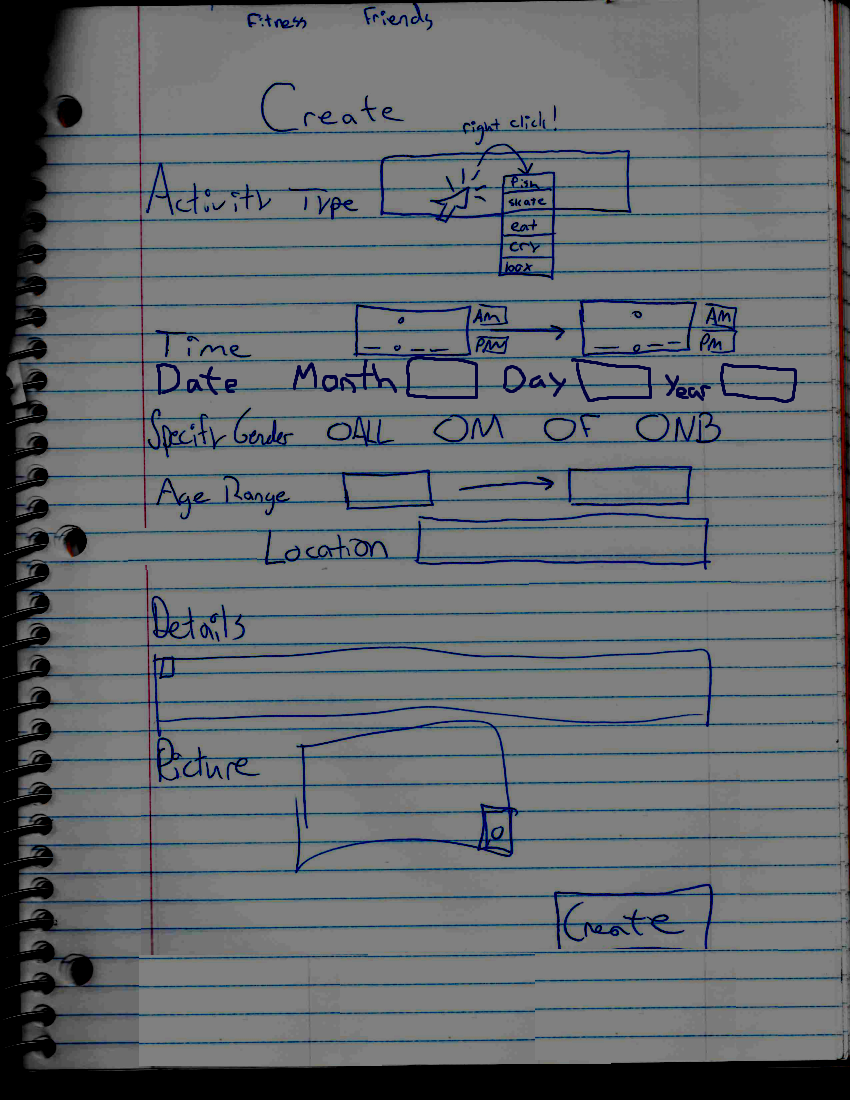 Fitness Friends
Create
right click!
Activity Type
Fish
skate
eat
cry
box
Time : AM PM : AM PM
Date Month Day Year
Specify Gender ALL M F NB
Age Range
Location
Details
Picture
Create